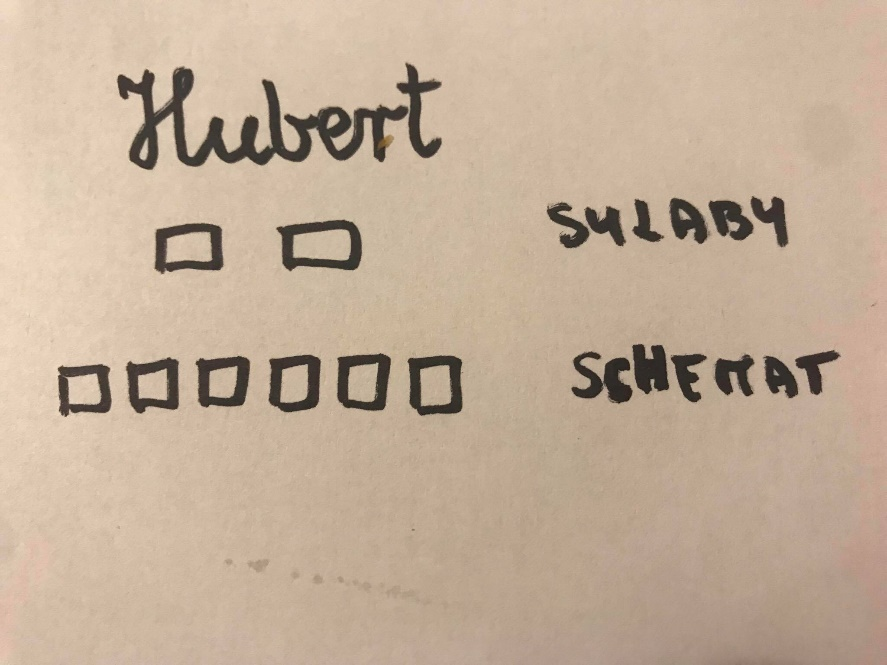 Hubert
SYLABY
SCHEMAT